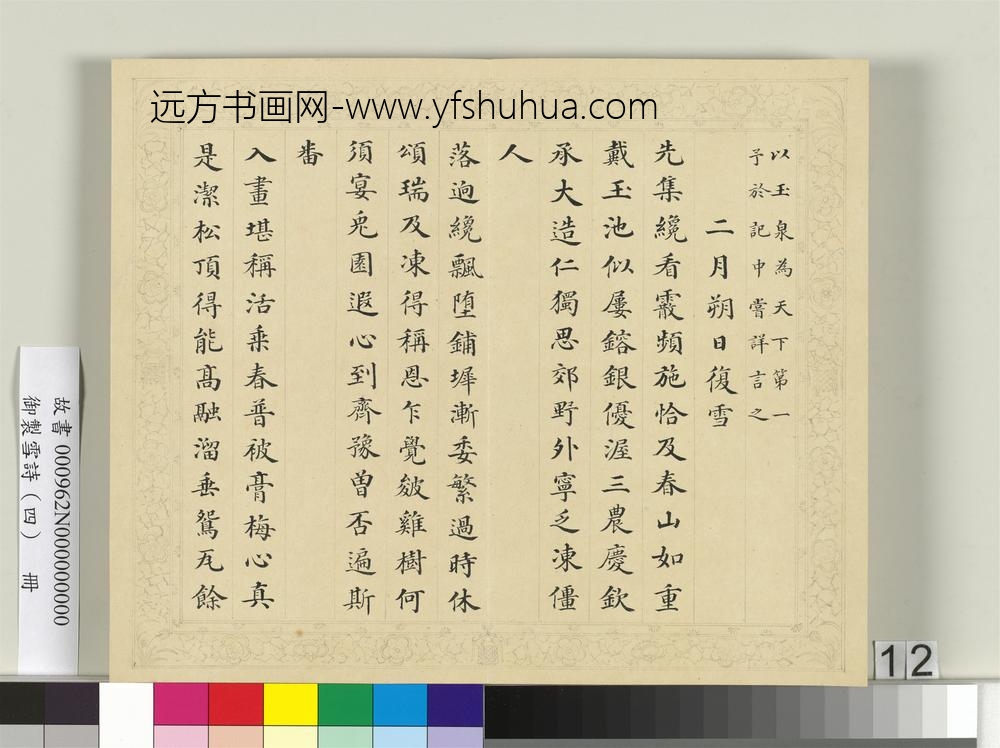 远方书画网-www.yfshuhua.com
以玉泉為天下第一
予於記中嘗詳言之
二月朔日復雪
先集纔看霰頻施恰及春山如重
戴玉池似屢鎔銀優渥三農慶欽
承大造仁獨思郊野外寧乏凍僵
人
落逈纔飄墮鋪墀漸委繁過時休
頌瑞及凍得稱恩乍覺皴雞樹何
須宴兎園遐心到齊豫曾否遍斯
番
入畫堪稱活乗春普被膏梅心真
是潔松頂得能髙融溜垂鴛瓦餘
故書 000962N000000000
御製雪詩（四） 冊
12